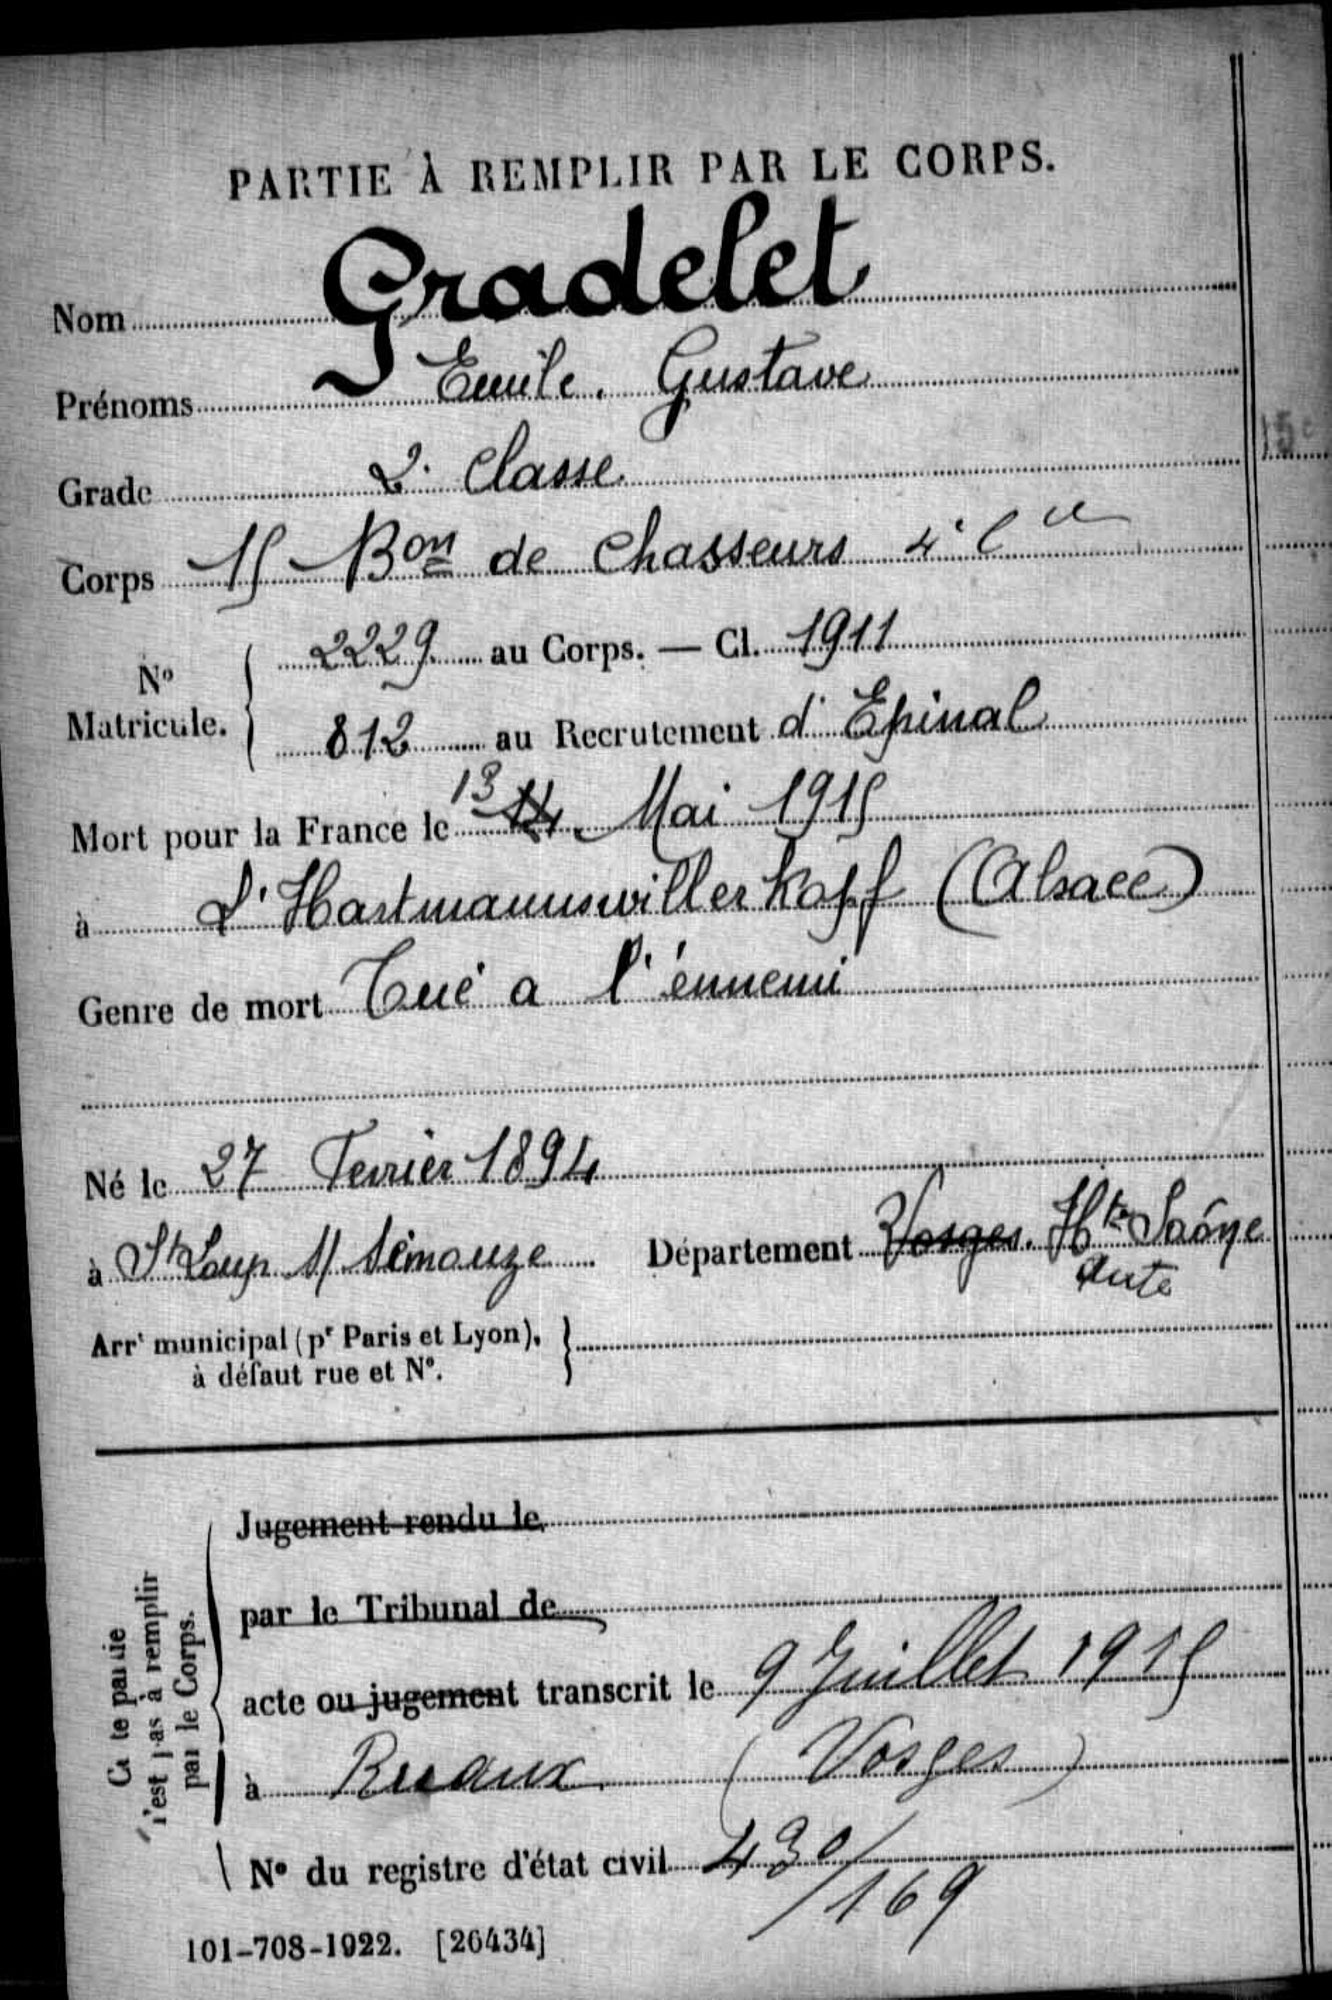 PARTIE À REMPLIR PAR LE CORPS.
Nom Gradelet
Prénoms Emile. Gustave
Grade 2. Classe
15e
Corps 15 Bon de Chasseurs 4e Cie
No Matricule. { 2229 au Corps. — Cl. 1911
812 au Recrutement d'Epinal
Mort pour la France le 13 14 Mai 1915
à L'Hartmannswillerkopf (Alsace)
Genre de mort Tué a l'énnemi
Né le 27 Fevrier 1894
à St Loup s/ Sémouze Département Vosges. Hte Saône
Arrt municipal (pr Paris et Lyon), à défaut rue et No. }
Jugement rendu le
par le Tribunal de
acte ou jugement transcrit le 9 Juillet 1915
à Ruaux (Vosges)
No du registre d'état civil 430/169
Cette partie n'est pas à remplir par le Corps.
101-708-1922. [26434]